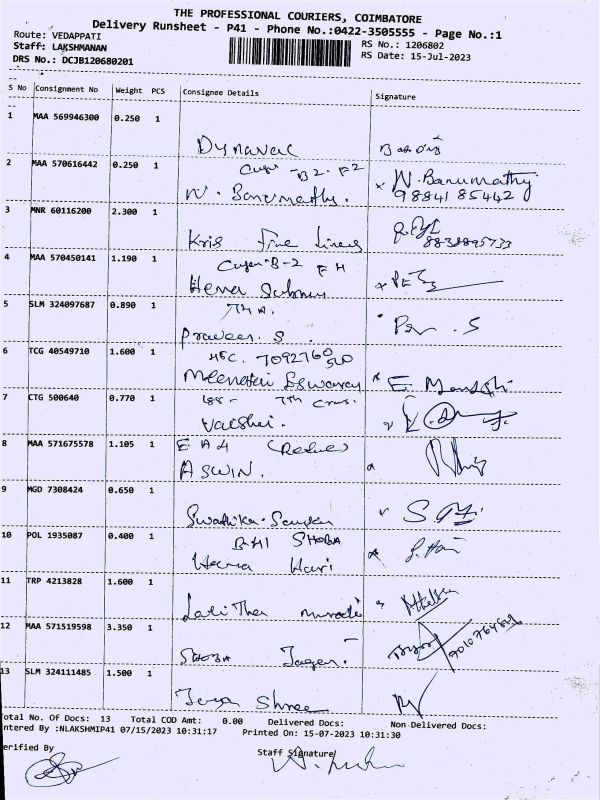 THE PROFESSIONAL COURIERS, COIMBATORE
Delivery Runsheet - P41 - Phone No.:0422-3505555 - Page No.:1
Route: VEDAPPATI
RS No.: 1206802
Staff: LAKSHMANAN
RS Date: 15-Jul-2023
DRS No.: DCJB120680201
S No Consignment No Weight PCS Consignee Details Signature
1 MAA 569946300 0.250 1
Dynavac
2 MAA 570616442 0.250 1
B2. F2
N. Banumathy. N.Banumathy
98841 85442
3 MNR 60116200 2.300 1
Kris Fine Linens
8838895733
4 MAA 570450141 1.190 1
B-2 F H
Hema
5 SLM 324097687 0.890 1
Praveen. S
6 TCG 40549710 1.600 1
HFC. 7092760
Meenatchi Eswaray
7 CTG 500640 0.770 1
7th Cross.
Varshei.
8 MAA 571675578 1.105 1
E A4
ASWIN.
9 MGD 7308424 0.650 1
Swathika
10 POL 1935087 0.400 1
SHOBA
Hari
11 TRP 4213828 1.600 1
Lalitha murali
12 MAA 571519598 3.350 1
SHOBA
13 SLM 324111485 1.500 1
Shree
otal No. Of Docs: 13 Total COD Amt: 0.00 Delivered Docs: Non Delivered Docs:
ntered By :NLAKSHMIP41 07/15/2023 10:31:17 Printed On: 15-07-2023 10:31:30
erified By
Staff Signature